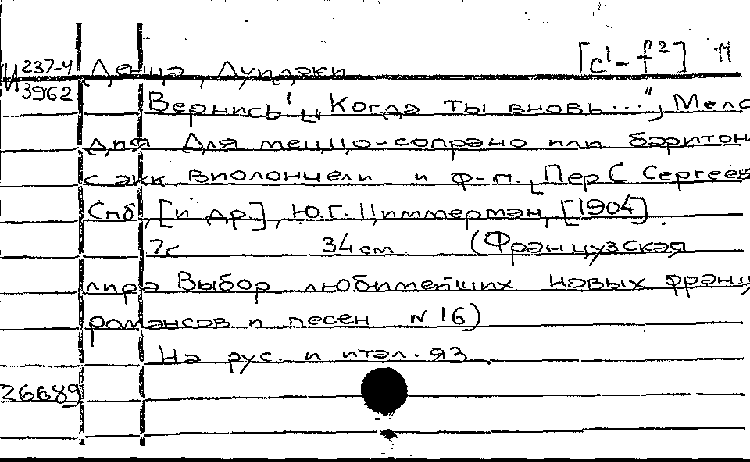 И 237-4 Денца, Луиджи [c¹-f²] 11
3962
Вернись! „Когда ты вновь...", Мело
дия Для меццо-сопрано или баритон
с акк виолончели и ф-п. Пер С Сергеев
Спб, [и др.], Ю.Г. Циммерман, [1904].
7с 34 см (Французская
лира Выбор любимейших новых франц
романсов и песен N 16)
На рус. и итал. яз
26689